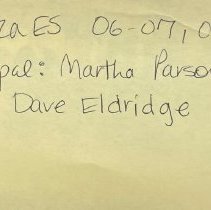 za ES 06-07, 0
pal: Martha Parso
Dave Eldridge